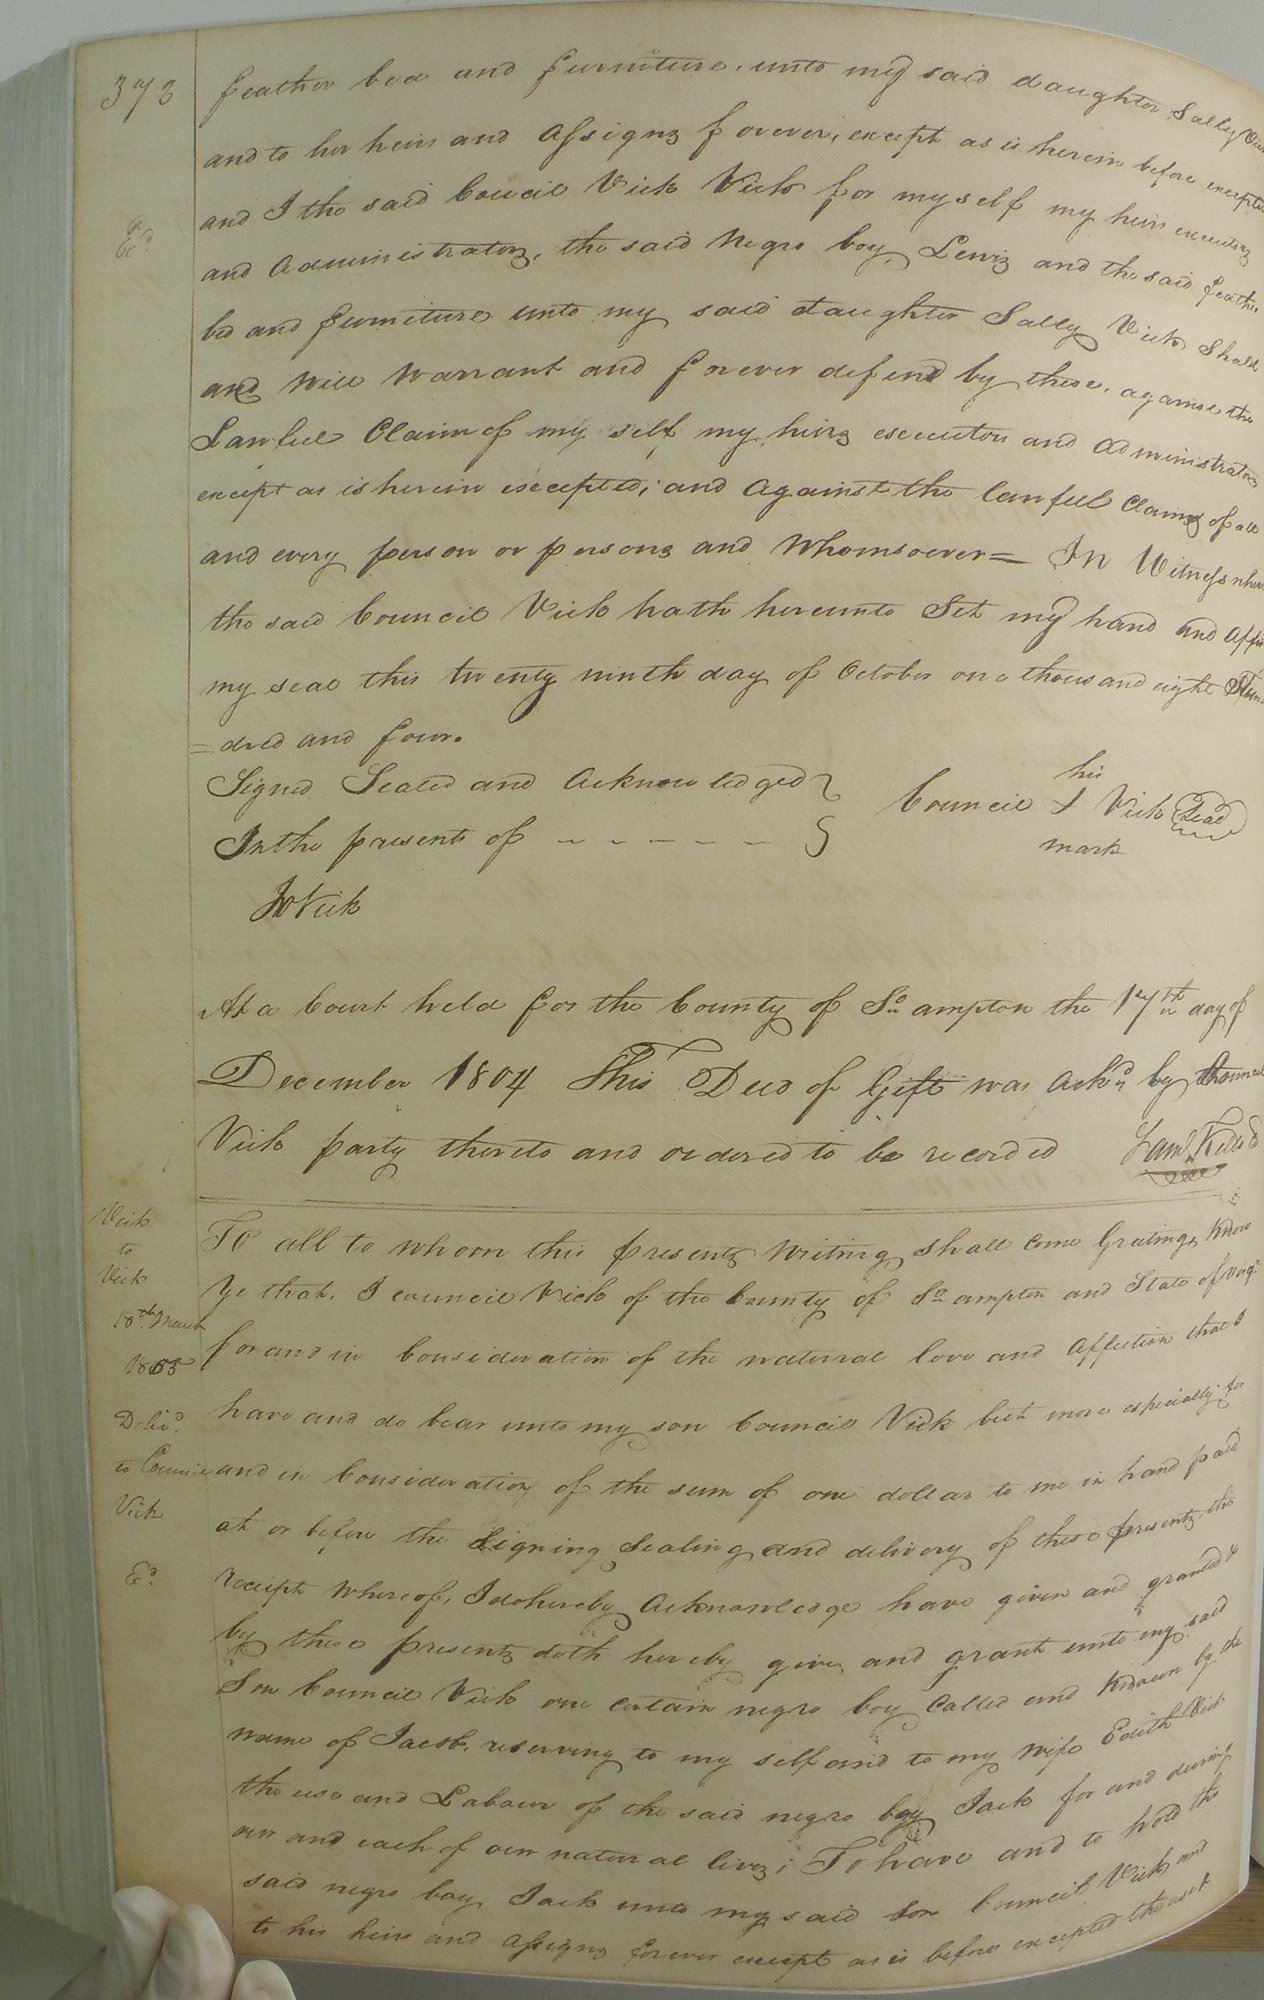 373
feather bed and furniture, unto my said daughter Sally Vick
and to her heirs and Assigns forever, except as is herein before excepted
and I the said Council Vick Vick for myself my heirs executors
Ed
and Administrators, the said Negro boy, Lewis and the said feather
bed and furniture unto my said daughter Sally Vick shall
and will warrant and forever defend by these, against the
Lawful Claim of my self my heirs executors and administrators
except as is herein excepted; and against the lawful claims of all
and every person or persons and Whomsoever = In Witness where
the said Council Vick hath hereunto Set my hand and affix
my seal this twenty ninth day of October one thousand eight Hun=
=dred and four.
Signed Sealed and Acknowledged
In the presents of - - - - - -
his
Council I Vick Seal
mark
Jo Vick
At a Court held for the County of So.ampton the 17th day of
December 1804 This Deed of Gift was Ackd by Council
Vick party thereto and ordered to be recorded Saml Kello
Vick
to
Vick
18th March
1805
Delivd.
to Council
Vick
Ed.
To all to whom this presents writing shall come Greeting, Know
Ye that, I council Vick of the County of So.ampton and State of Virga
for and in Consideration of the natural love and affection that I
have and do bear unto my son Council Vick but more especially for
and in Consideration of the sum of one dollar to me in hand paid
at or before the Signing Sealing and delivery of these presents, the
receipt whereof, I do hereby Acknowledge have given and granted &
by these presents doth hereby give, and grant unto my said
Son Council Vick one certain negro boy Called and Known by the
name of Jacob, reserving to my self and to my wife Edith Vick
the use and Labour of the said negro boy Jack for and during
our and each of our natural lives; To have and to hold the
said negro boy, Jack unto my said Son Council Vick and
to his heirs and Assigns forever except as is before excepted